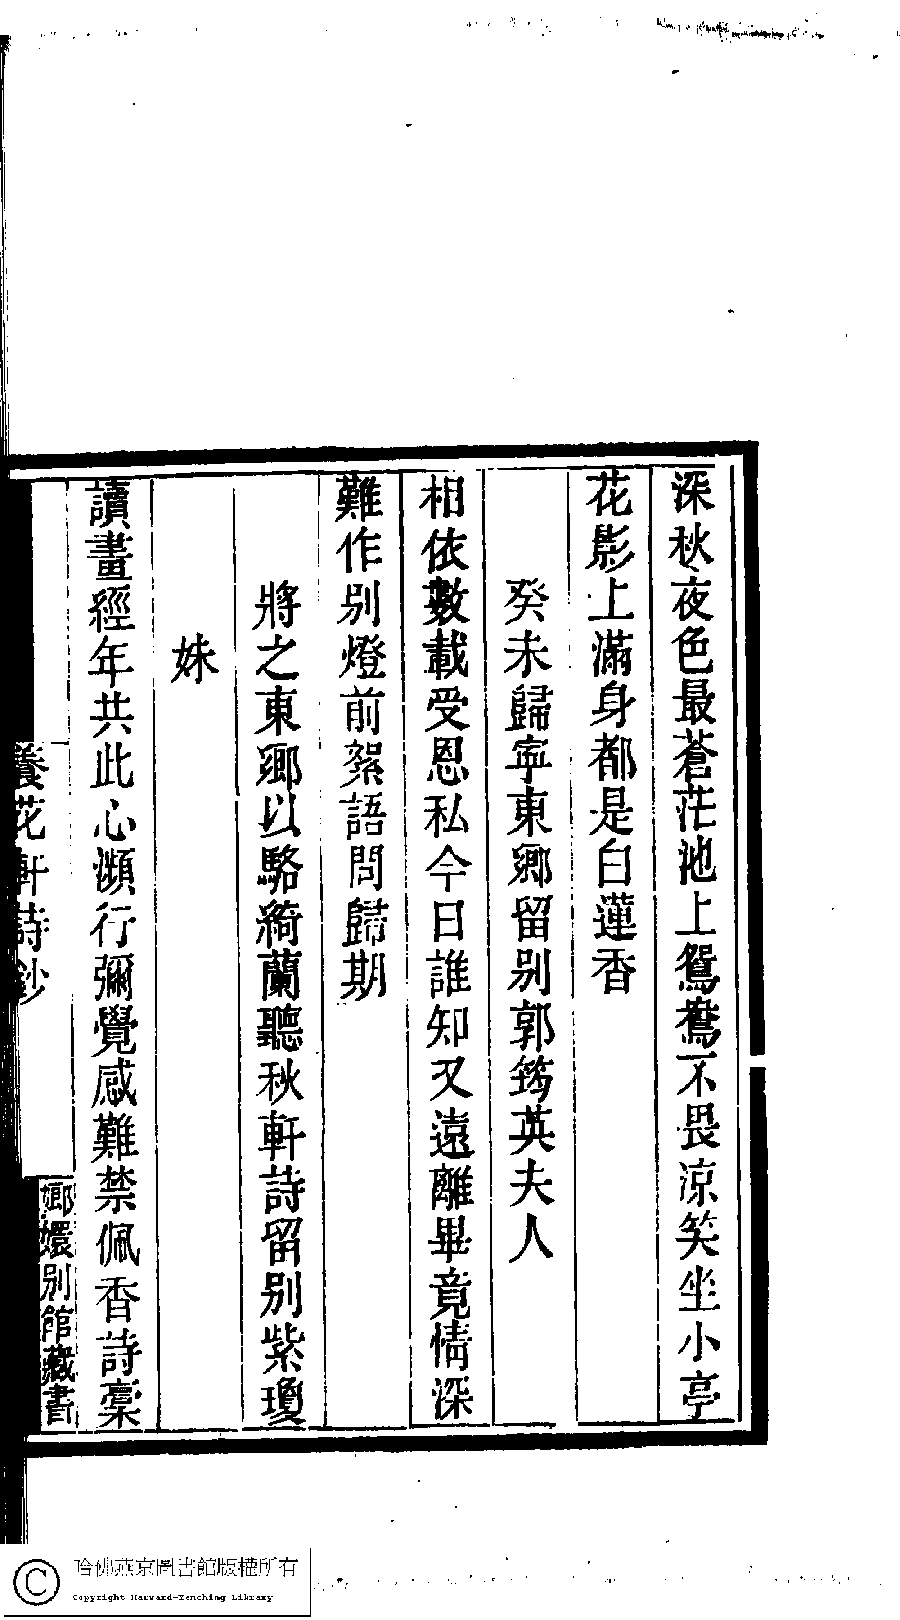 深秋夜色最蒼茫池上鴛鴦不畏凉笑坐小亭
花影上滿身都是白蓮香
癸未歸寧東鄉留别郭筠英夫人
相依數載受恩私今日誰知又遠離畢竟情深
難作别燈前絮語問歸期
將之東鄉以駱綺蘭聽秋軒詩留别紫瓊
妹
讀畫經年共此心瀕行彌覺感難禁佩香詩稾
養花軒詩鈔
嫏嬛别館藏書
哈佛燕京圖書館版權所有
Copyright Harvard-Yenching Library